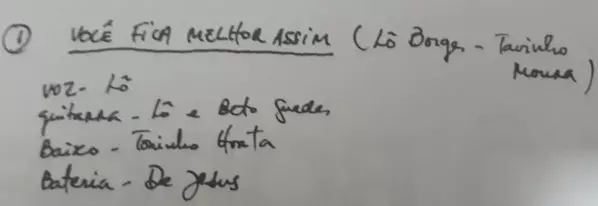 ① VOCÊ FICA MELHOR ASSIM (Lô Borges - Tavinho
Moura)
voz - Lô
guitarra - Lô e Beto Guedes
Baixo - Toninho Horta
Bateria - De Jesus